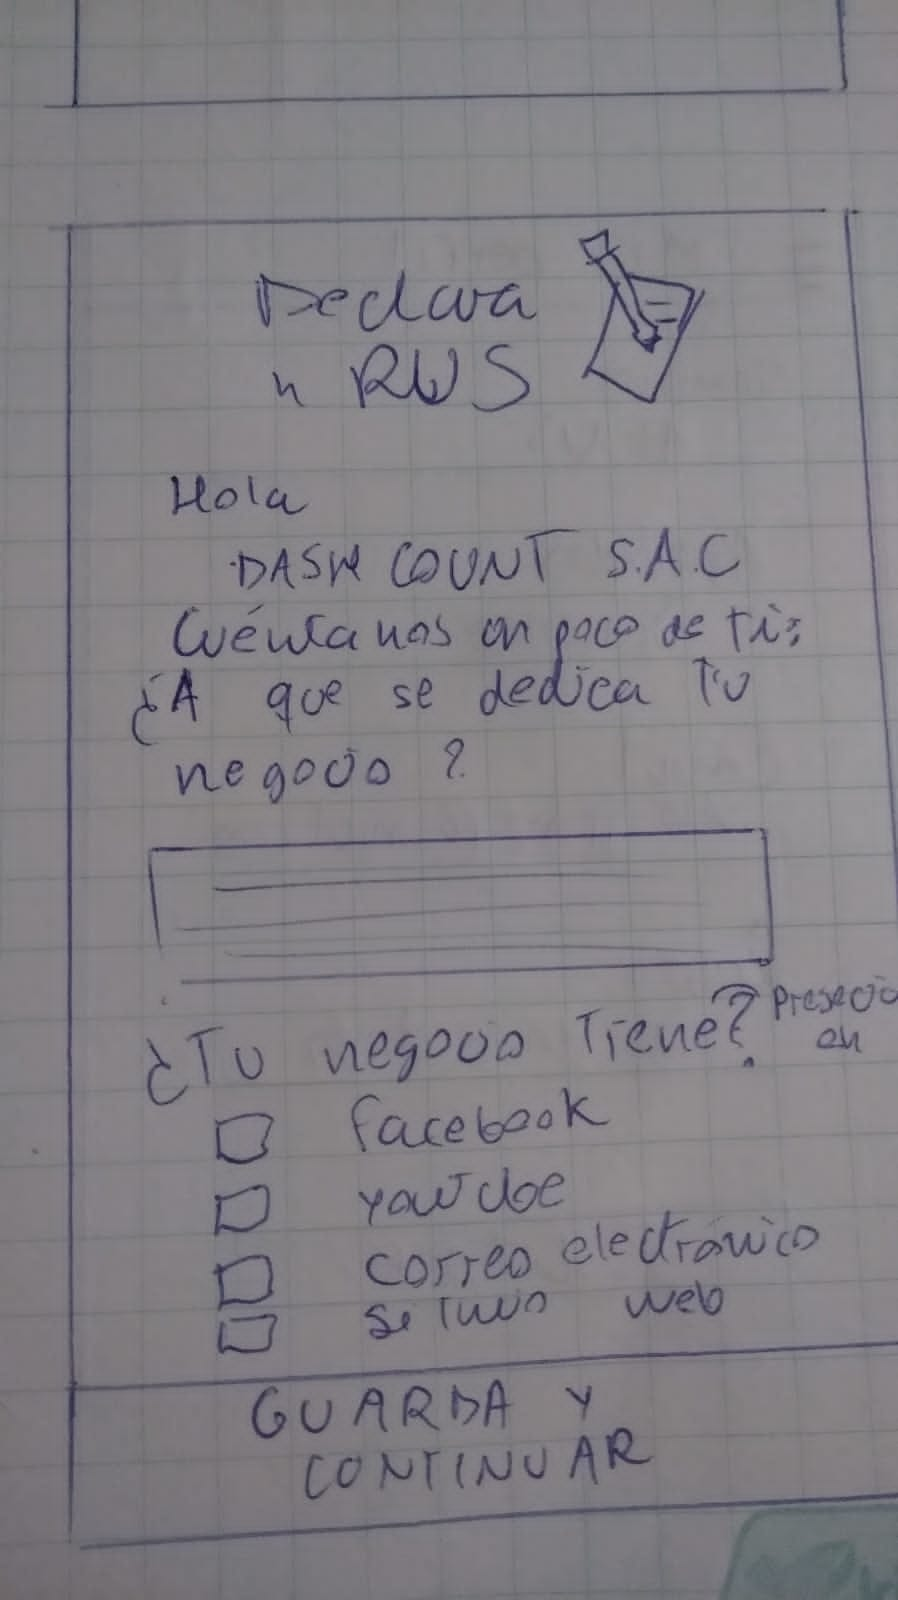 Declara
n RUS
Hola
DASH COUNT S.A.C
Cuéntanos un poco de ti:
¿A que se dedica tu
negocio ?
¿Tu negocio tiene? presecio
en
facebook
youtube
correo electrónico
web
GUARDA Y
CONTINUAR